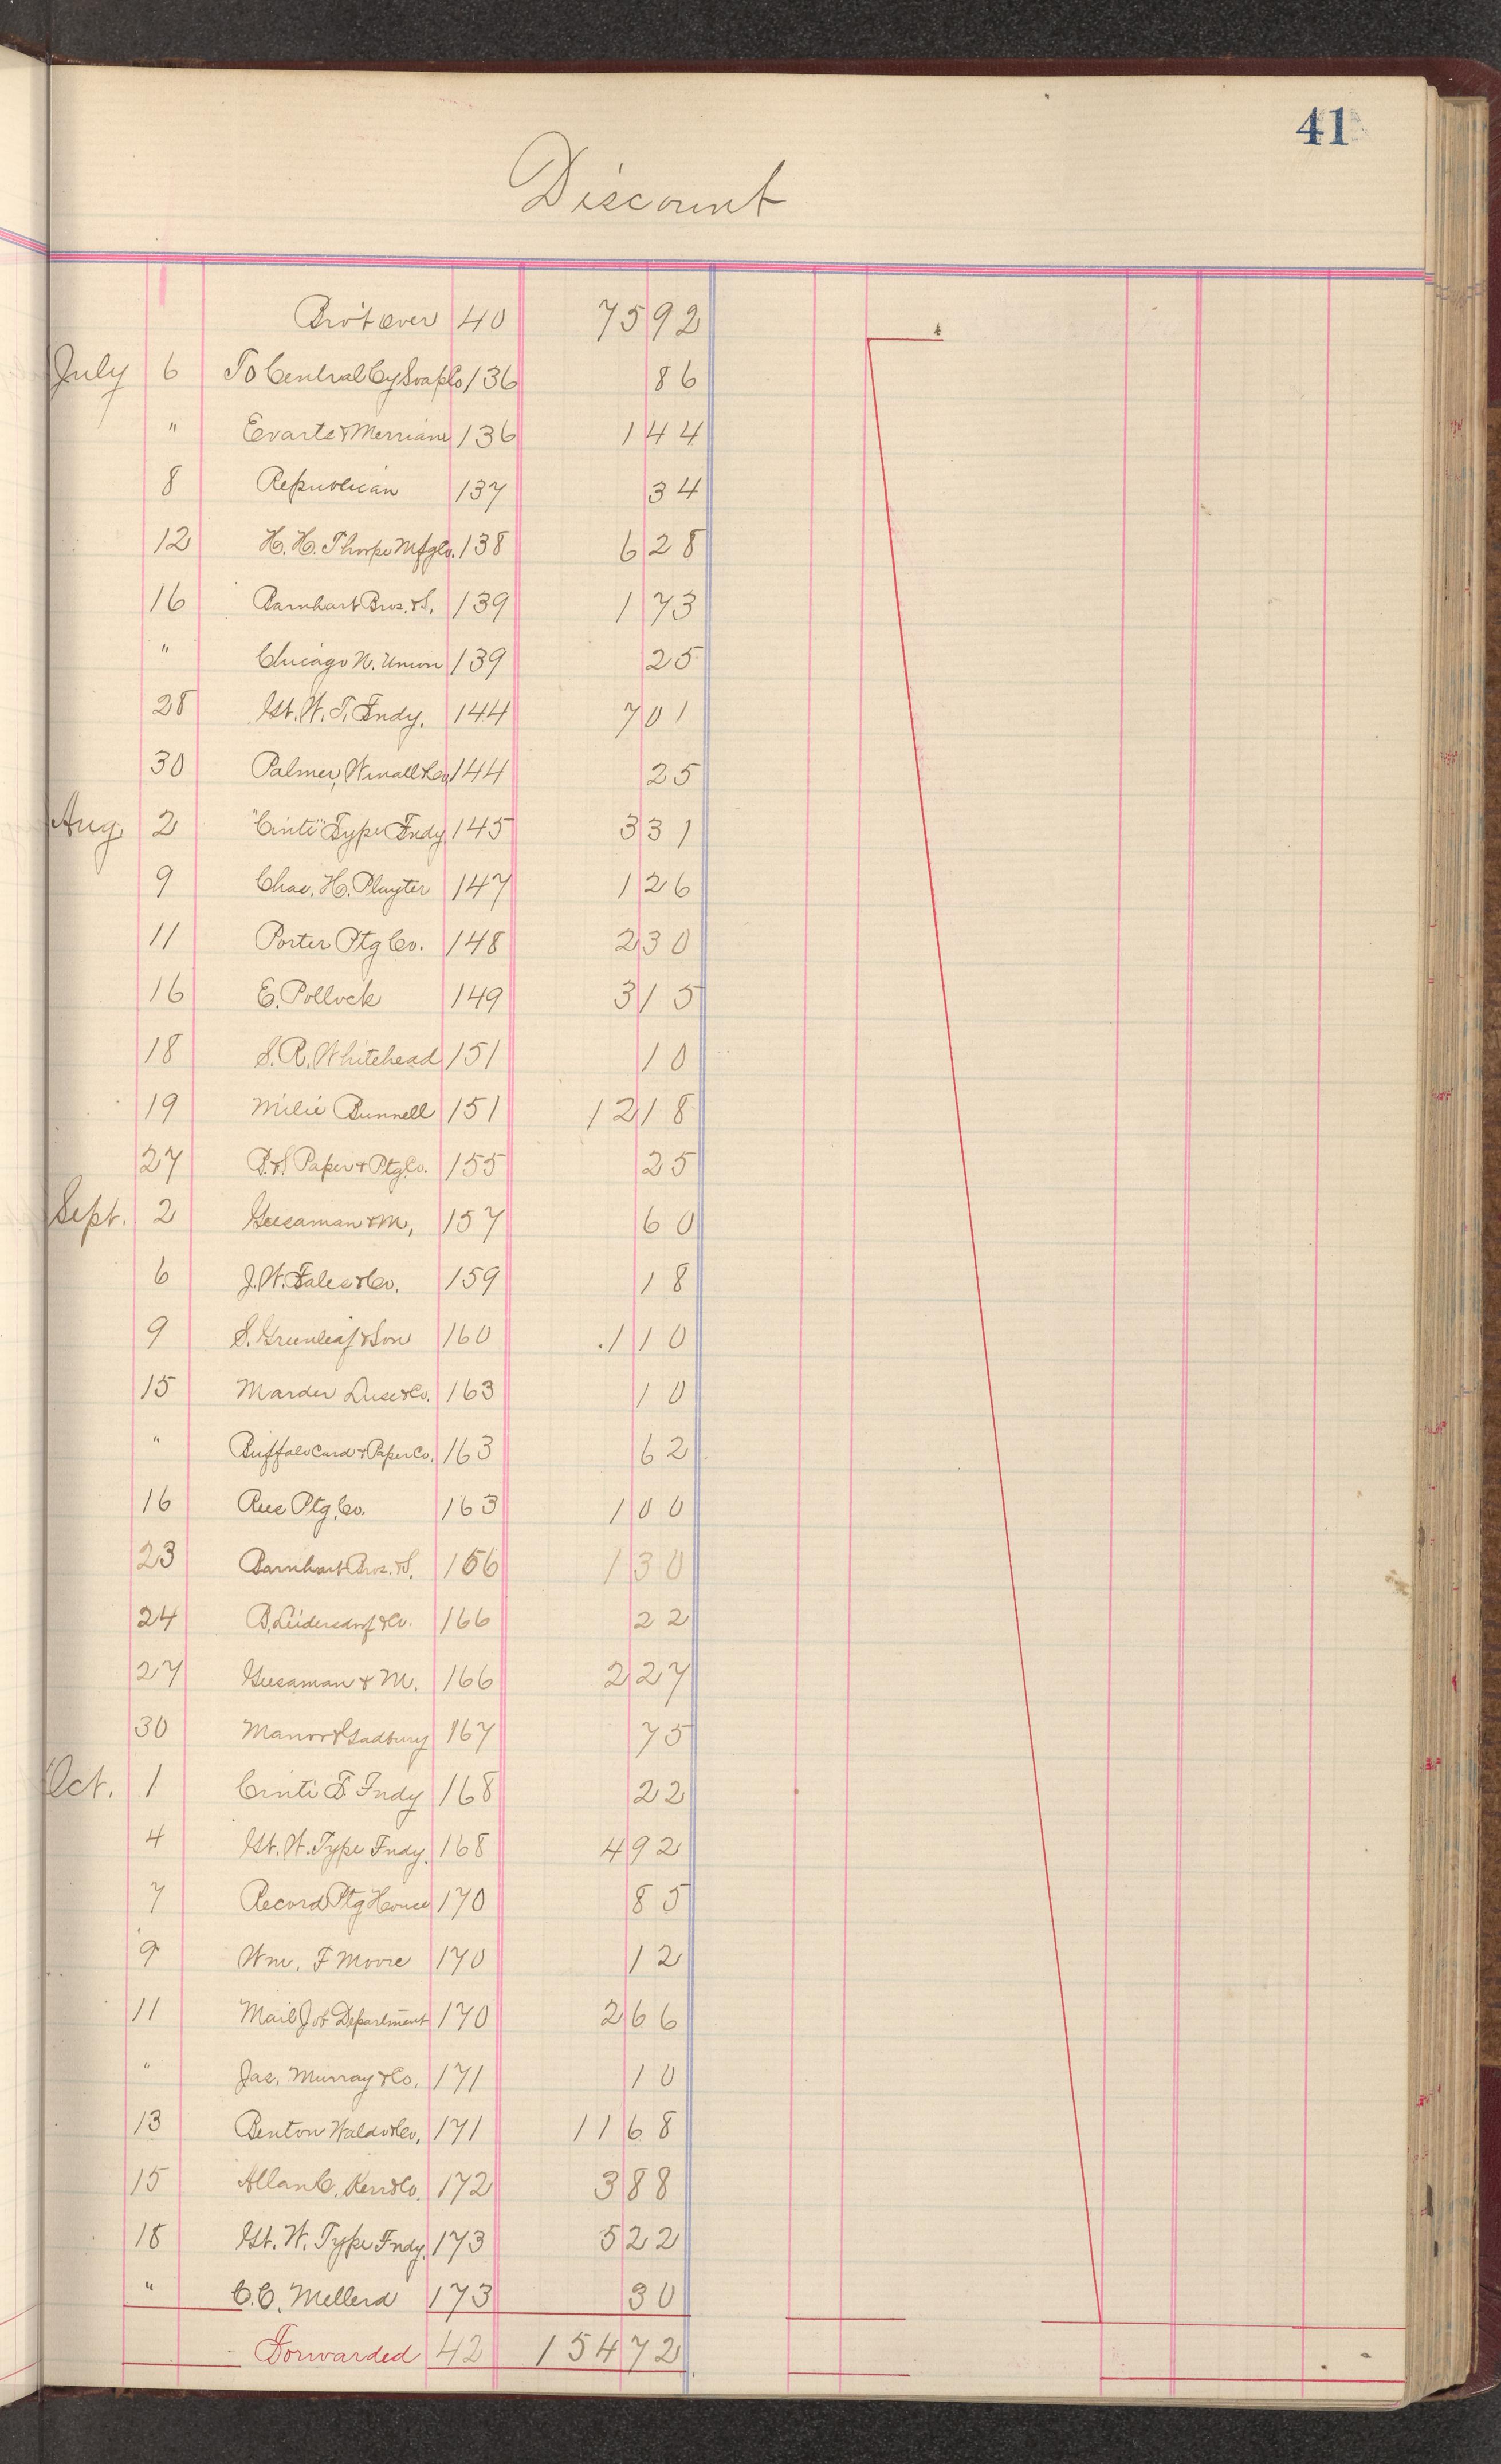 41
Discount
Bro't Over 40 75 92
July 6 To Central Cy Soap Co 136 86
" Evarts & Merriam 136 1 44
8 Republican 137 34
12 H. H. Thorpe Mfg Co. 138 6 28
16 Barnhart Bros. & S. 139 1 73
" Chicago N. Union 139 25
28 Gt. W. T. Fndy. 144 7 01
30 Palmer, Winall & Co 144 25
Aug. 2 "Cinti" Type Fndy 145 3 31
9 Chas. H. Playter 147 1 26
11 Porter Ptg Co. 148 2 30
16 E. Pollock 149 3 15
18 S. R. Whitehead 151 10
19 Milie Bunnell 151 12 18
27 B. & S Paper & Ptg Co. 155 25
Sept. 2 Geesaman & M. 157 60
6 J. W. Fales & Co. 159 18
9 S. Greenleaf & Son 160 1 10
15 Marder Luse & Co. 163 10
" Buffalo Card & Paper Co. 163 62
16 Rees Ptg. Co. 163 1 00
23 Barnhart Bros. & S. 166 1 30
24 B. Leidersdorf & Co. 166 22
27 Geesaman & M. 166 2 27
30 Manor & Gadbury 167 75
Oct. 1 Cinti T Fndy 168 22
4 Gt. W. Type Fndy. 168 4 92
7 Record Ptg House 170 85
9 Wm. F Moore 170 12
11 Mail Job Department 170 2 66
" Jas. Murray & Co. 171 10
13 Benton Waldo & Co. 171 11 68
15 Allan C. Kerr & Co. 172 3 88
18 Gt. W. Type Fndy. 173 5 22
" C. C. Mellerd 173 30
Forwarded 42 154 72